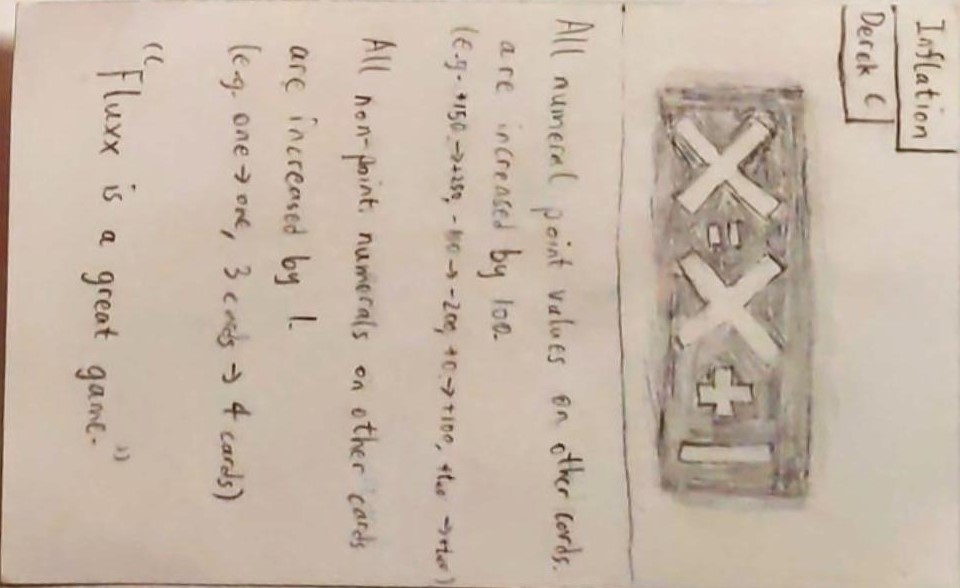 Inflation
Derek C
X = X + 1
All numeral point values on other cards.
are increased by 100.
(e.g. +150 → +250, -100 → -200, +0 → +100,
All non-point numerals on other cards
are increased by 1.
(e.g. one → one, 3 cards → 4 cards)
"Fluxx is a great game."